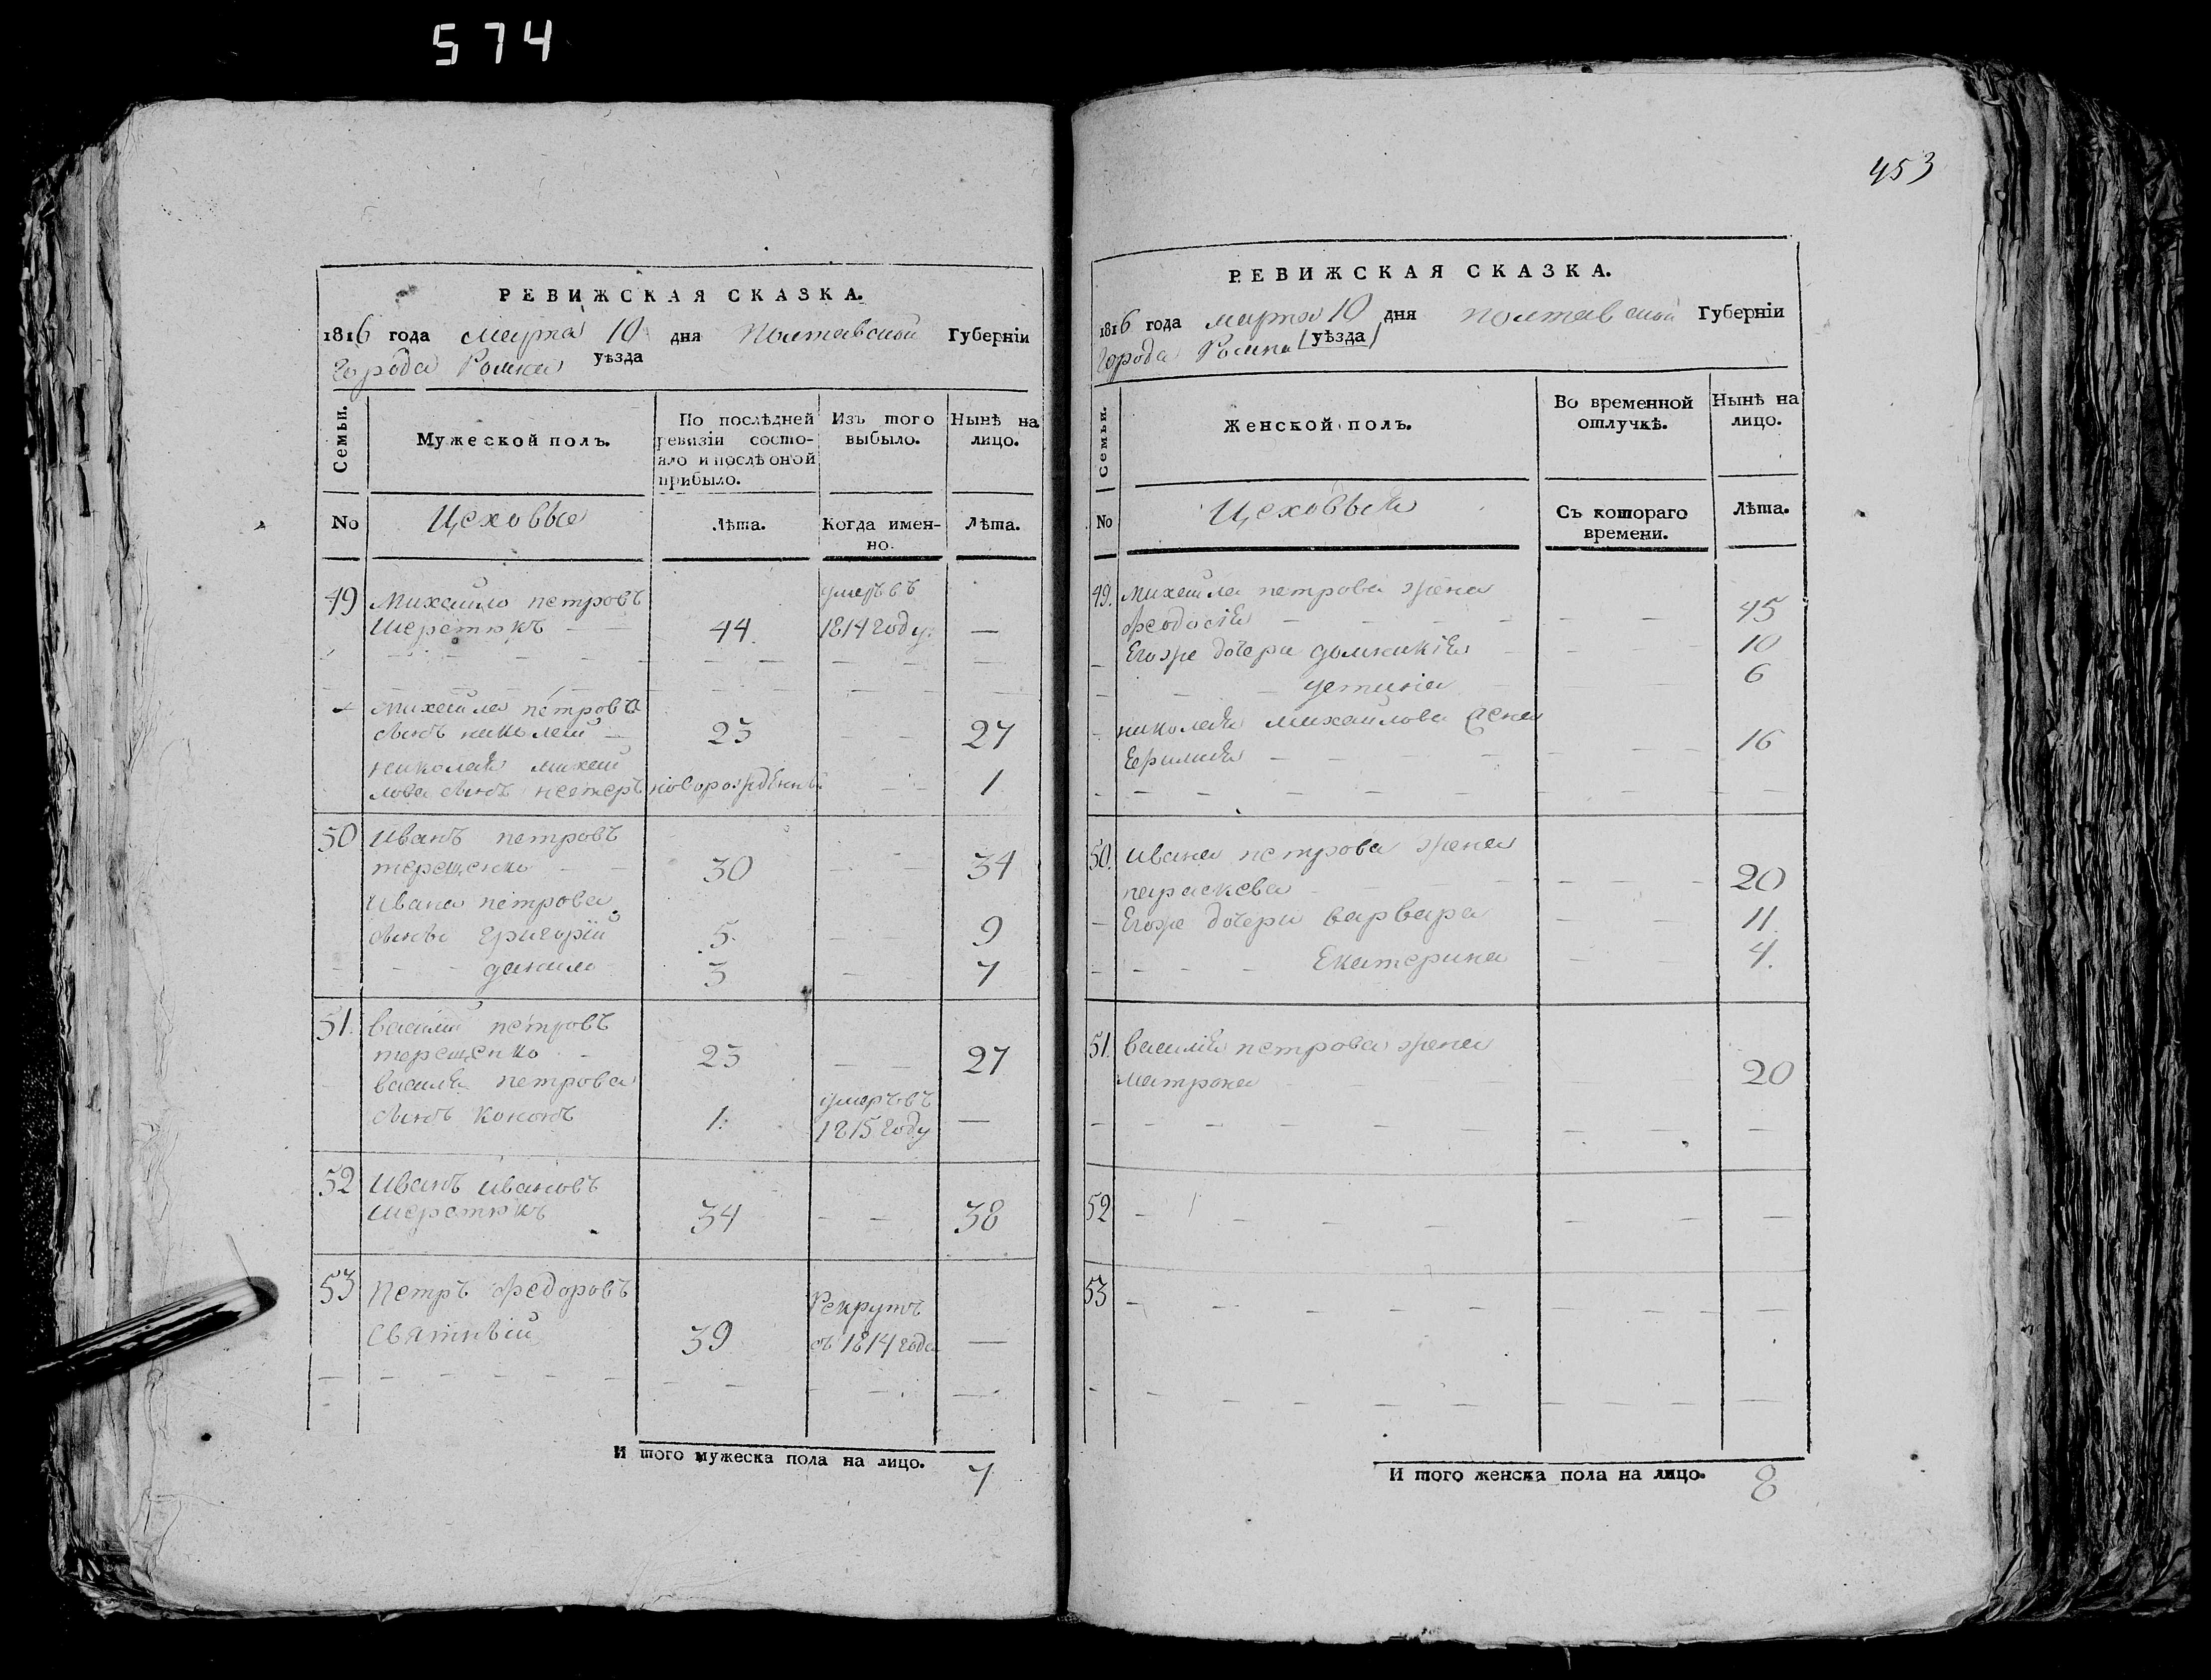 574
РЕВИЖСКАЯ СКАЗКА.
1816 года марта 10 дня Полтавской Губернїи
Города Ромна уѣзда
Семьи.
Мужеской полъ.
По послѣдней ревизїи состояло и послѣ оной прибыло.
Изъ того выбыло.
Нынѣ на лицо.
No
Цеховые
Лѣта.
Когда именно.
Лѣта.
49 Михайло петровъ умеръ въ
Шерстюкъ 44 1814 году —
Михайла петрова
сынъ николай 23 27
николая михай
лова сынъ нестеръ новорожденный 1
50 Иванъ петровъ
терещенко 30 34
Ивана петрова
сыновья григорїй 5 9
данило 3 7
51. василий петровъ
терещенко 23 27
василия петрова умеръ въ
сынъ кононъ 1. 1815 году —
52 Иванъ ивановъ
шерстюкъ 34 38
53 Петръ федоровъ Рекрутъ
39 съ 1814 года —
И того мужеска пола на лицо. 7
453
РЕВИЖСКАЯ СКАЗКА.
1816 года марта 10 дня полтавской Губернїи
Города Ромна (уѣзда)
Семьи.
Женской полъ.
Во временной отлучкѣ.
Нынѣ на лицо.
No
Цеховыя
Съ котораго времени.
Лѣта.
49. михайла петрова жена
феодосїя 45
Егоже дочери домникїя 10
устинїя 6
николая михайлова жена
16
50. ивана петрова жена
параскева 20
Егоже дочери варвара 11
Екатерина 4.
51. василїя петрова жена
матрона 20
52
53
И того женска пола на лицо. 8